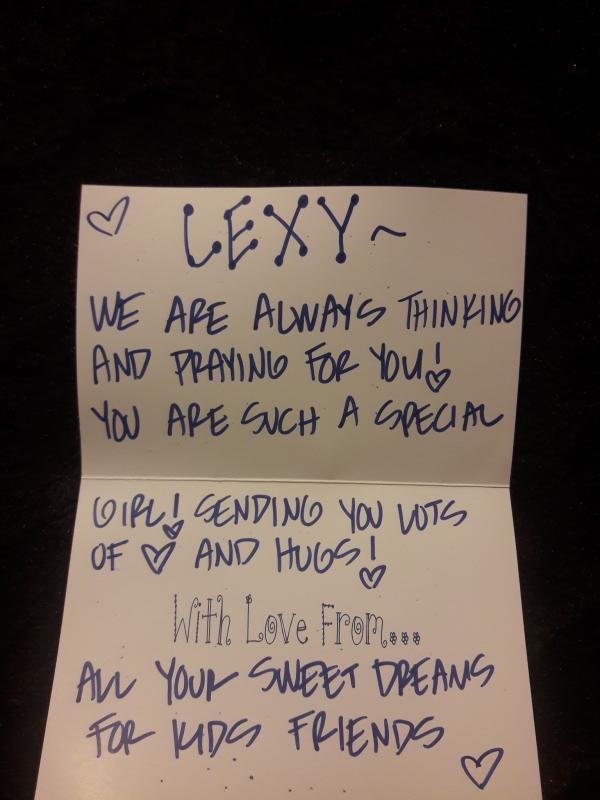 ♡ LEXY~
WE ARE ALWAYS THINKING
AND PRAYING FOR YOU!
YOU ARE SUCH A SPECIAL
GIRL! SENDING YOU LOTS
OF ♡ AND HUGS!
With Love From...
ALL YOUR SWEET DREAMS
FOR KIDS FRIENDS
♡